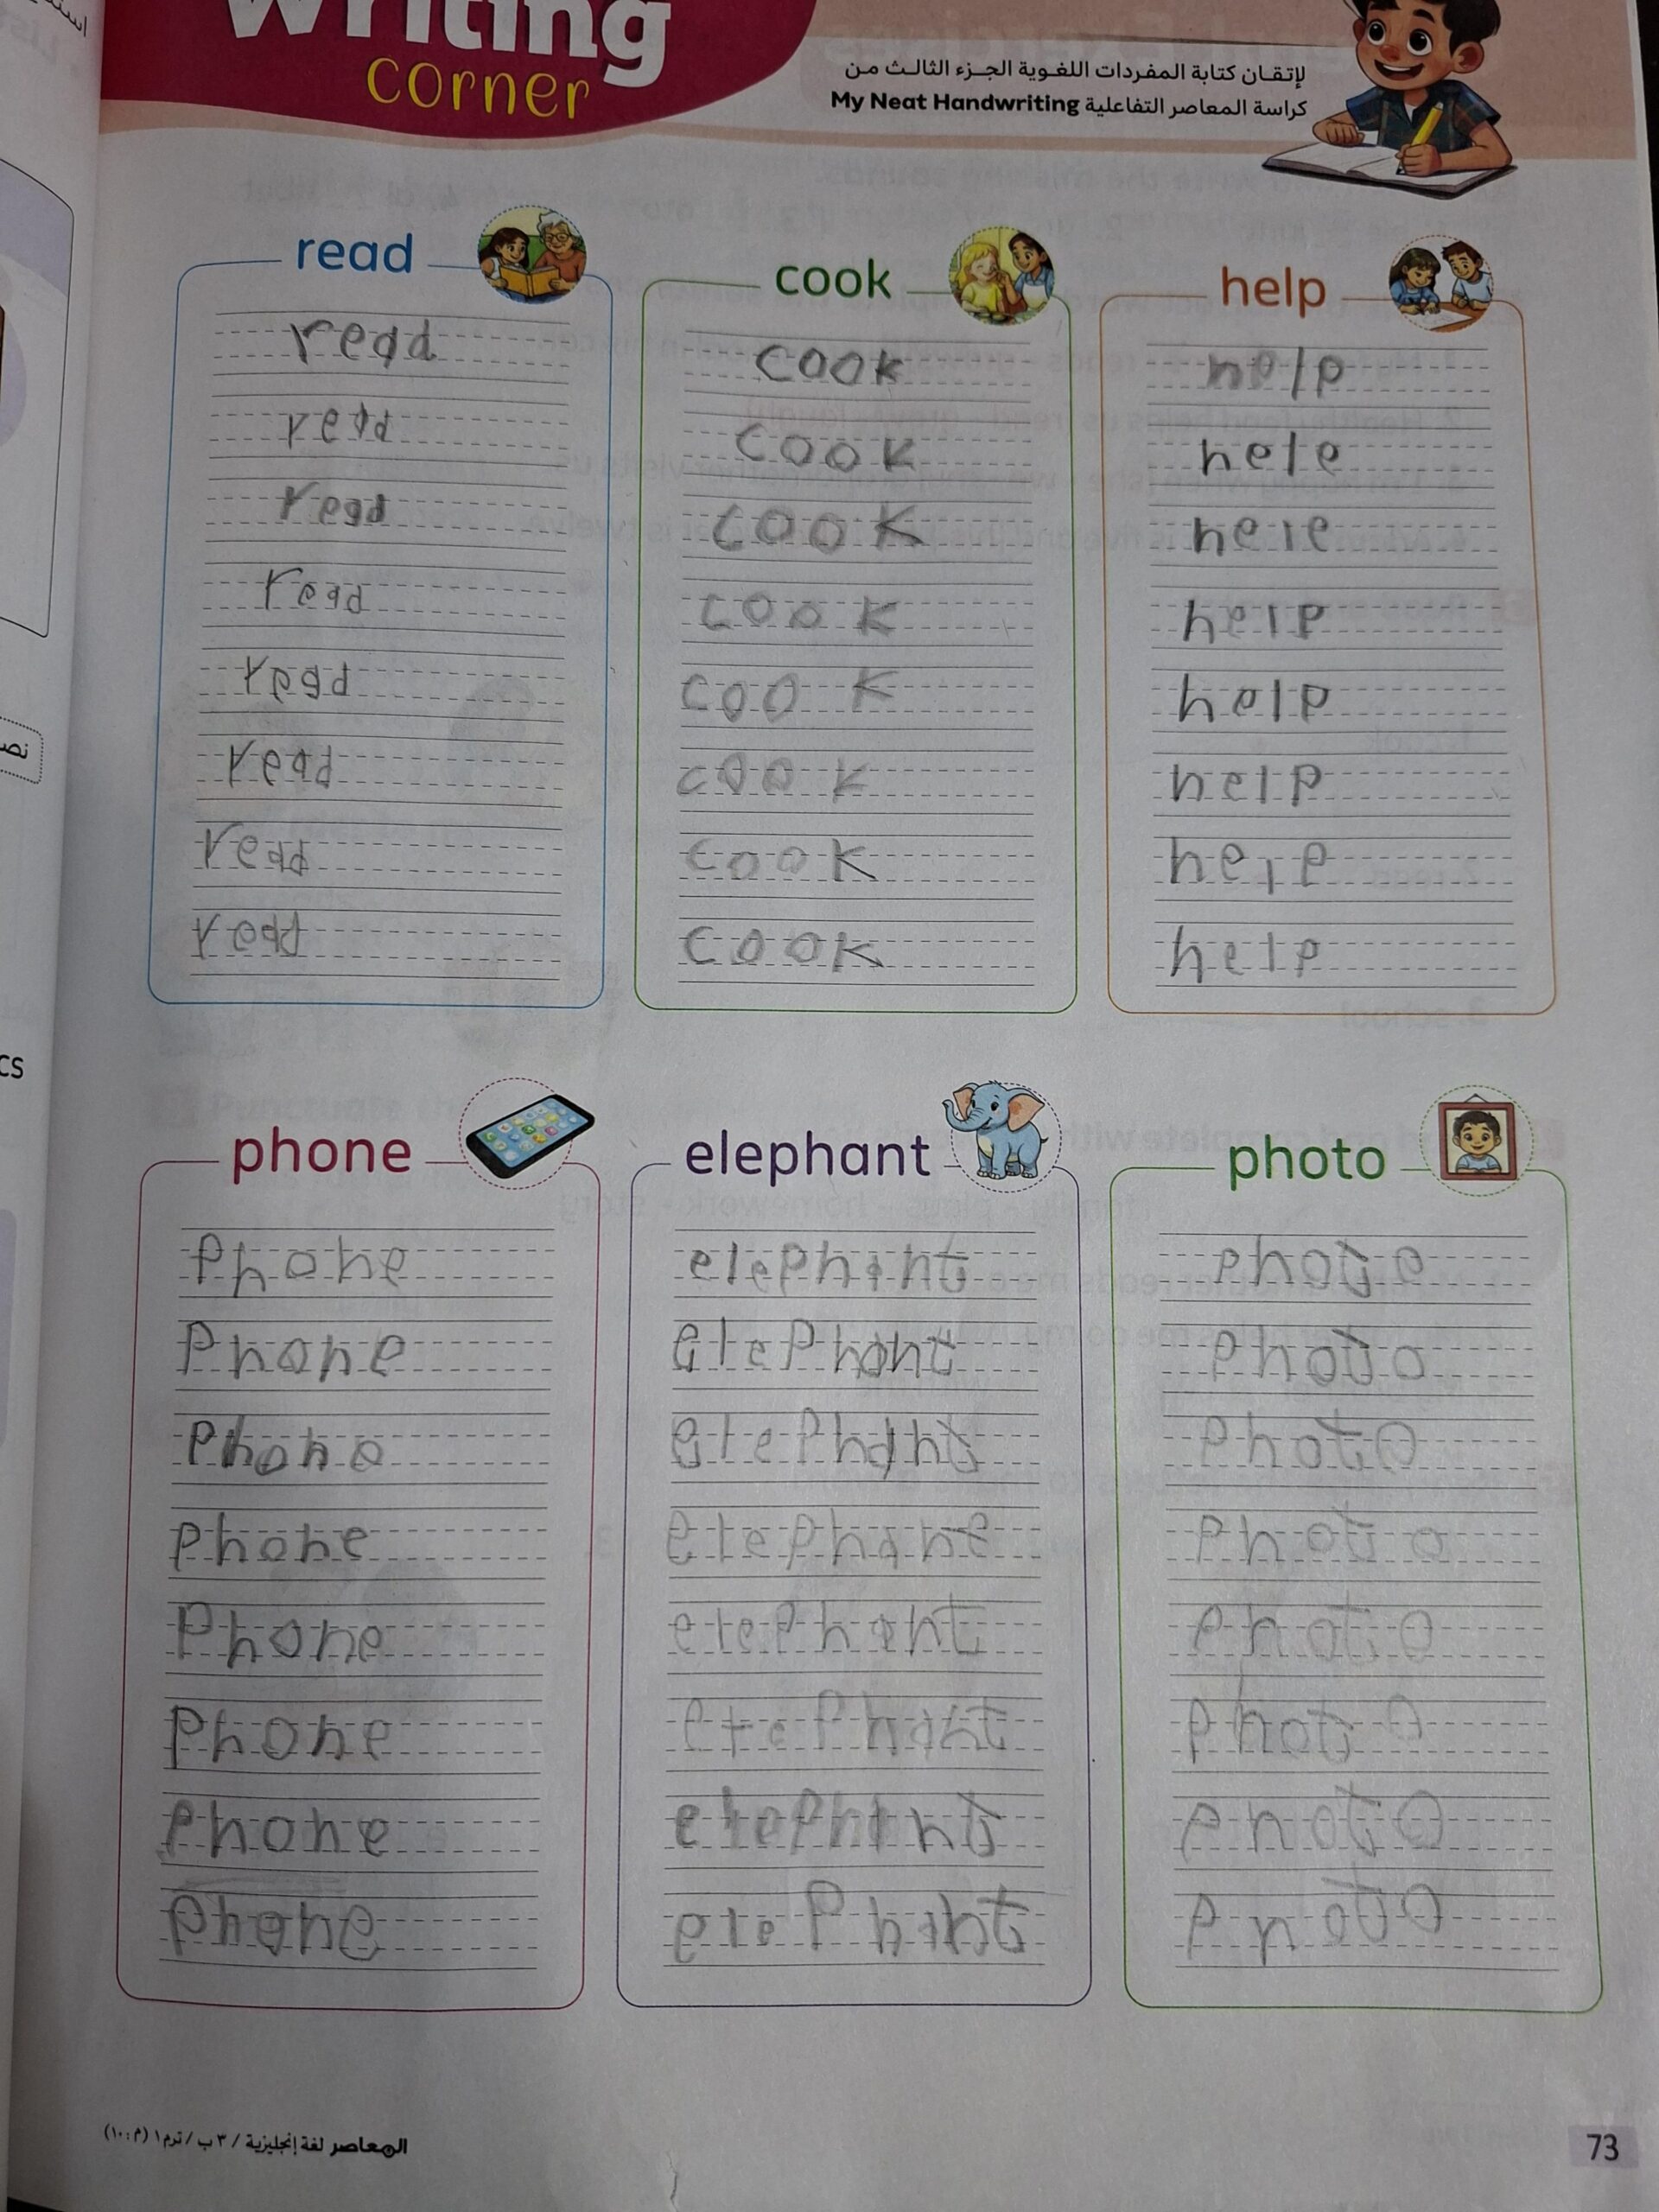 writing
corner
لإتقـان كتابة المفـردات اللغـوية الجـزء الثالـث مـن
كراسة المعاصر التفاعلية My Neat Handwriting
read
read
read
read
read
read
read
read
read
cook
cook
cook
cook
cook
cook
cook
cook
cook
help
help
hele
hele
help
help
help
help
help
phone
phone
phone
phono
phone
phone
phone
phone
phone
elephant
elephant
elephant
elephant
elephane
elephant
elephant
elephant
elephant
photo
photo
photo
photo
photo
photo
photo
photo
photo
cs
المعاصر لغة إنجليزية / ٣ ب / ترم ١ (م : ١٠)
73